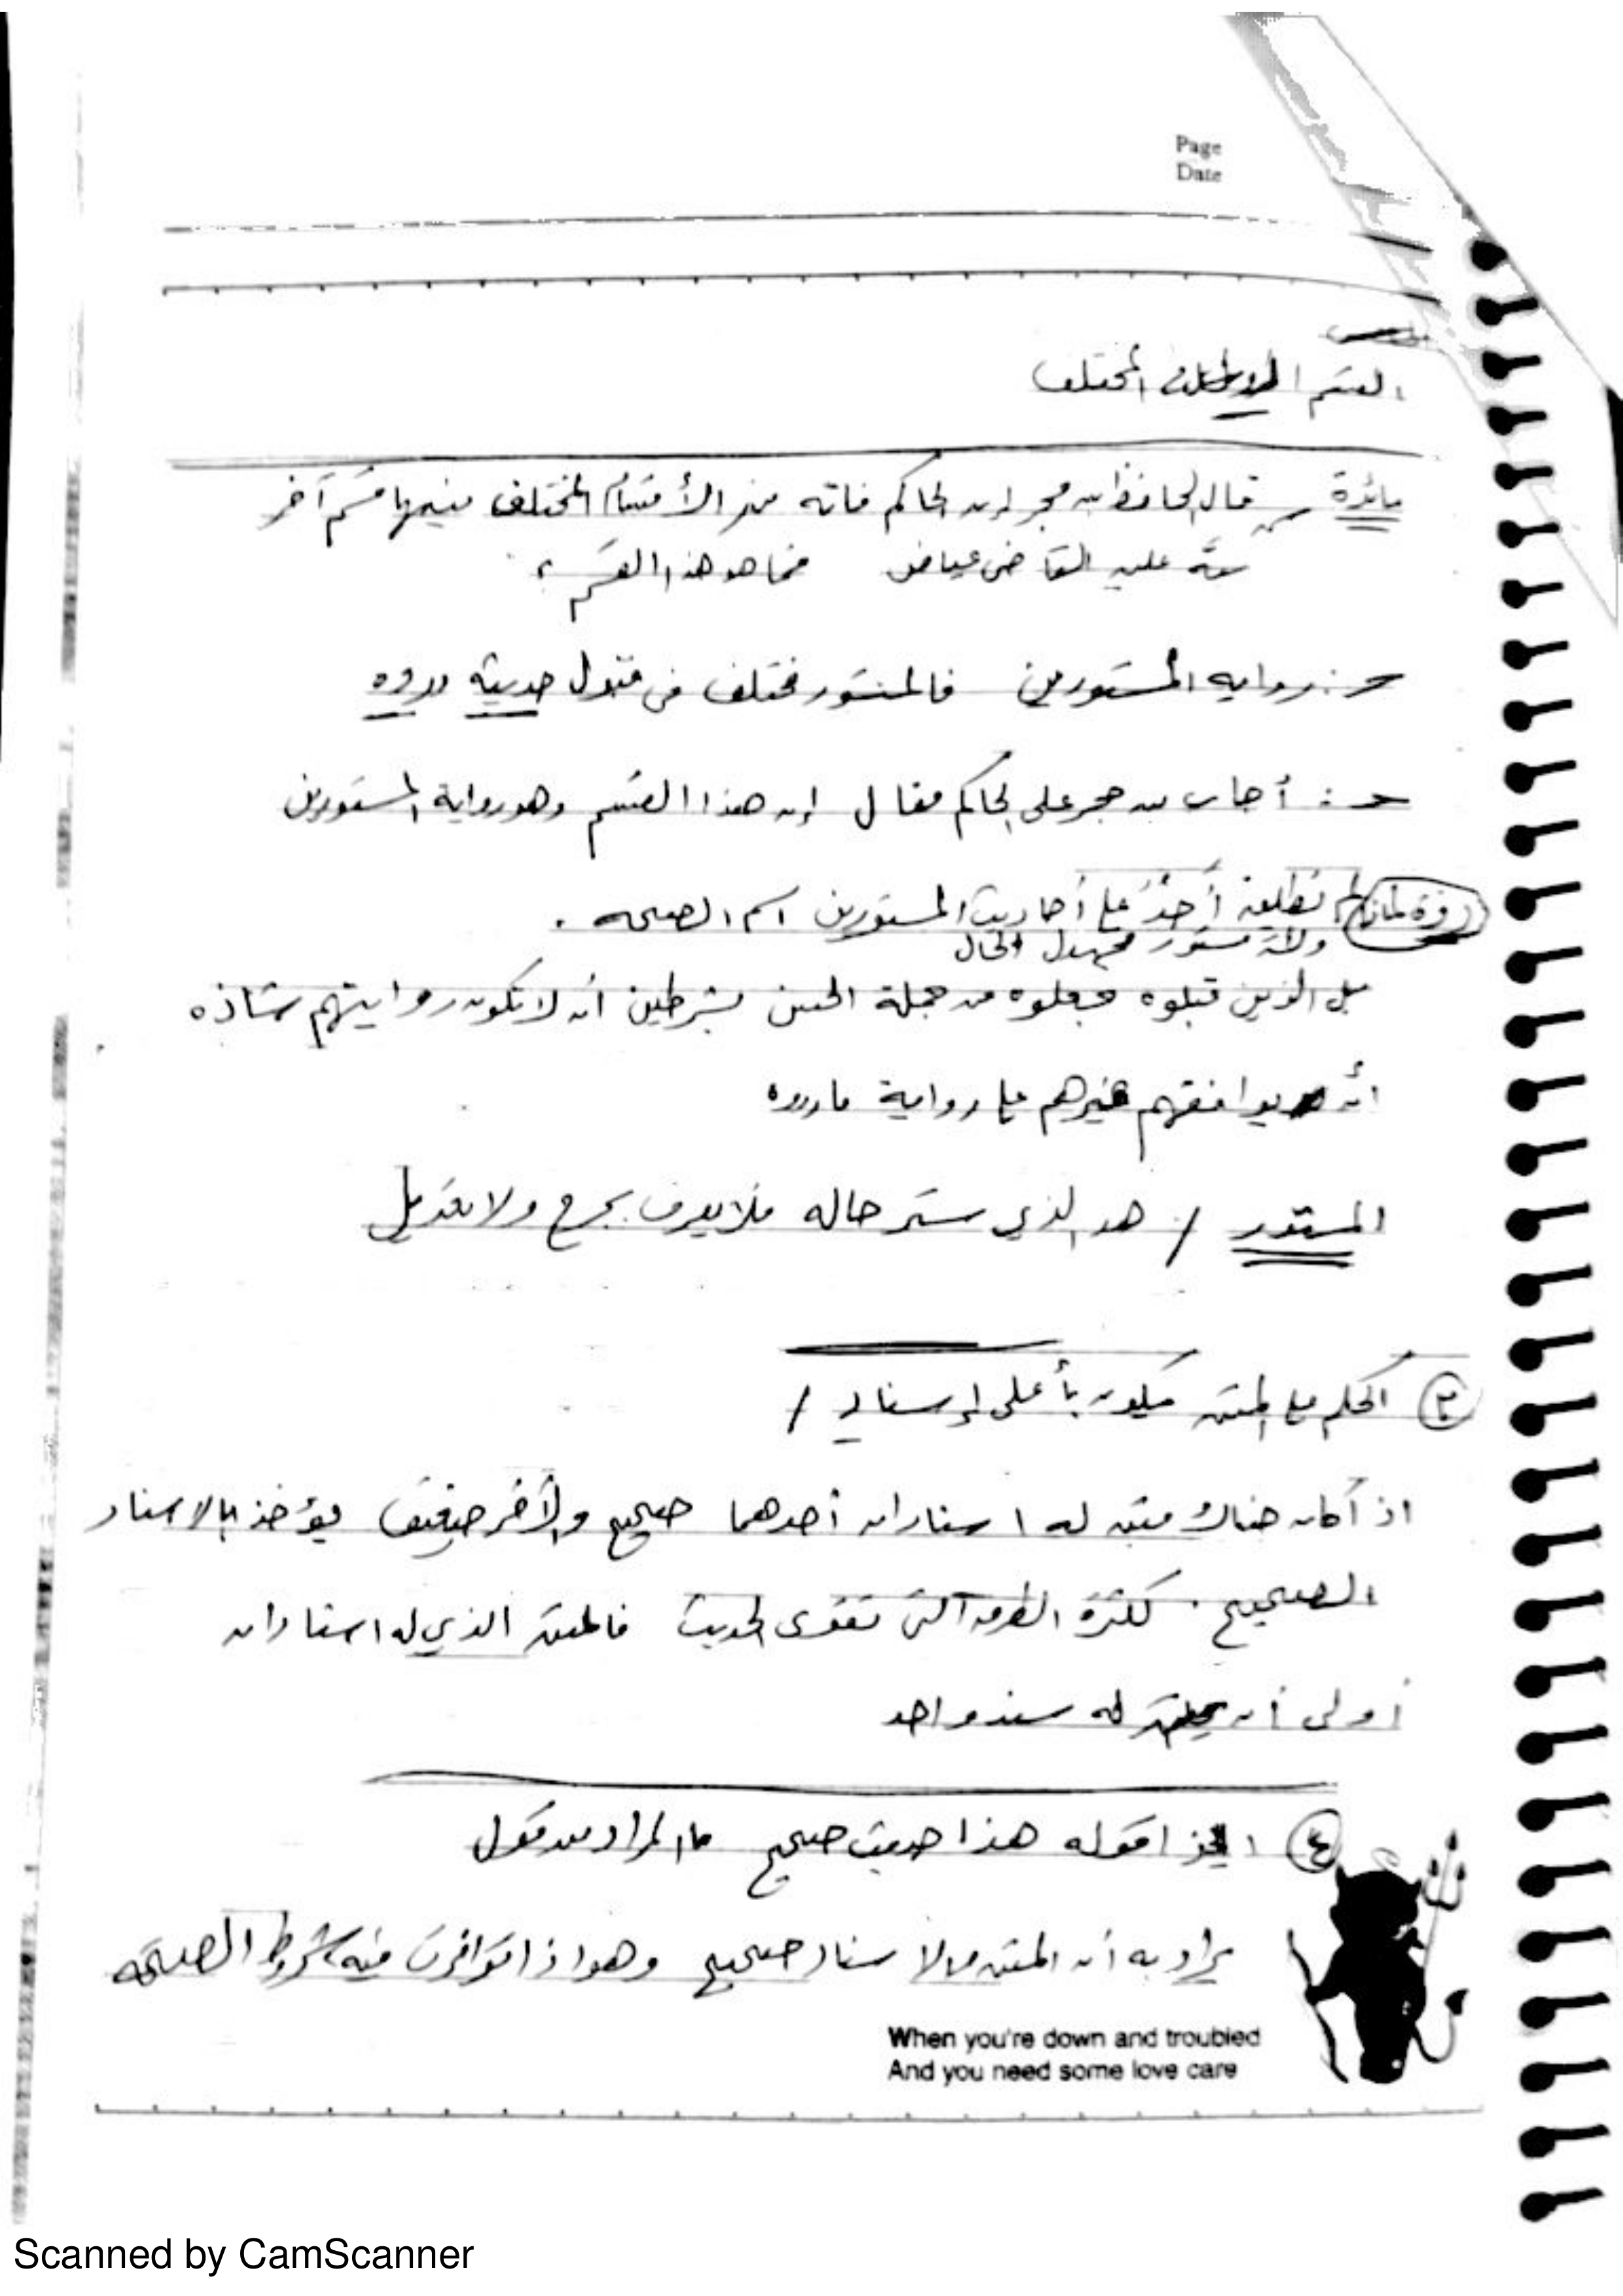 Page
Date
القسم المختلف
فائدة قال الحافظ ابن حجر إن الحاكم فاته من الأقسام المختلف فيها قسم آخر
نبه عليه القاضي عياض فما هو هذا القسم ؟
ج : رواية المستورين فالمستور مختلف في قبول حديثه ورده
ج : أجاب ابن حجر على الحاكم فقال إن هذا القسم وهو رواية المستورين
لم يطلق أحدٌ على أحاديث المستورين اسم الصحه .
ولأنه مستور مجهول الحال
بل الذين قبلوه جعلوه من جملة الحسن بشرطين أن لا تكون روايتهم شاذه
أن يوافقهم غيرهم على رواية ما رووه
المستور / هو الذي ستر حاله فلا يعرف بجرح ولا تعديل
٣ الحكم على المتن يكون بأعلى إسناد /
اذا كان هناك متن له اسنادان أحدهما صحيح والآخر ضعيف يؤخذ بالاسناد
الصحيح . لكثرة الطرق التي تقوى الحديث فالمتن الذي له اسنادان
أولى من له سند واحد
٤ قوله هذا حديث صحيح ما المراد من قول
يراد به أن المتن والاسناد صحيح وهو اذا توافرت فيه شروط الصحه
When you're down and troubled
And you need some love care
Scanned by CamScanner